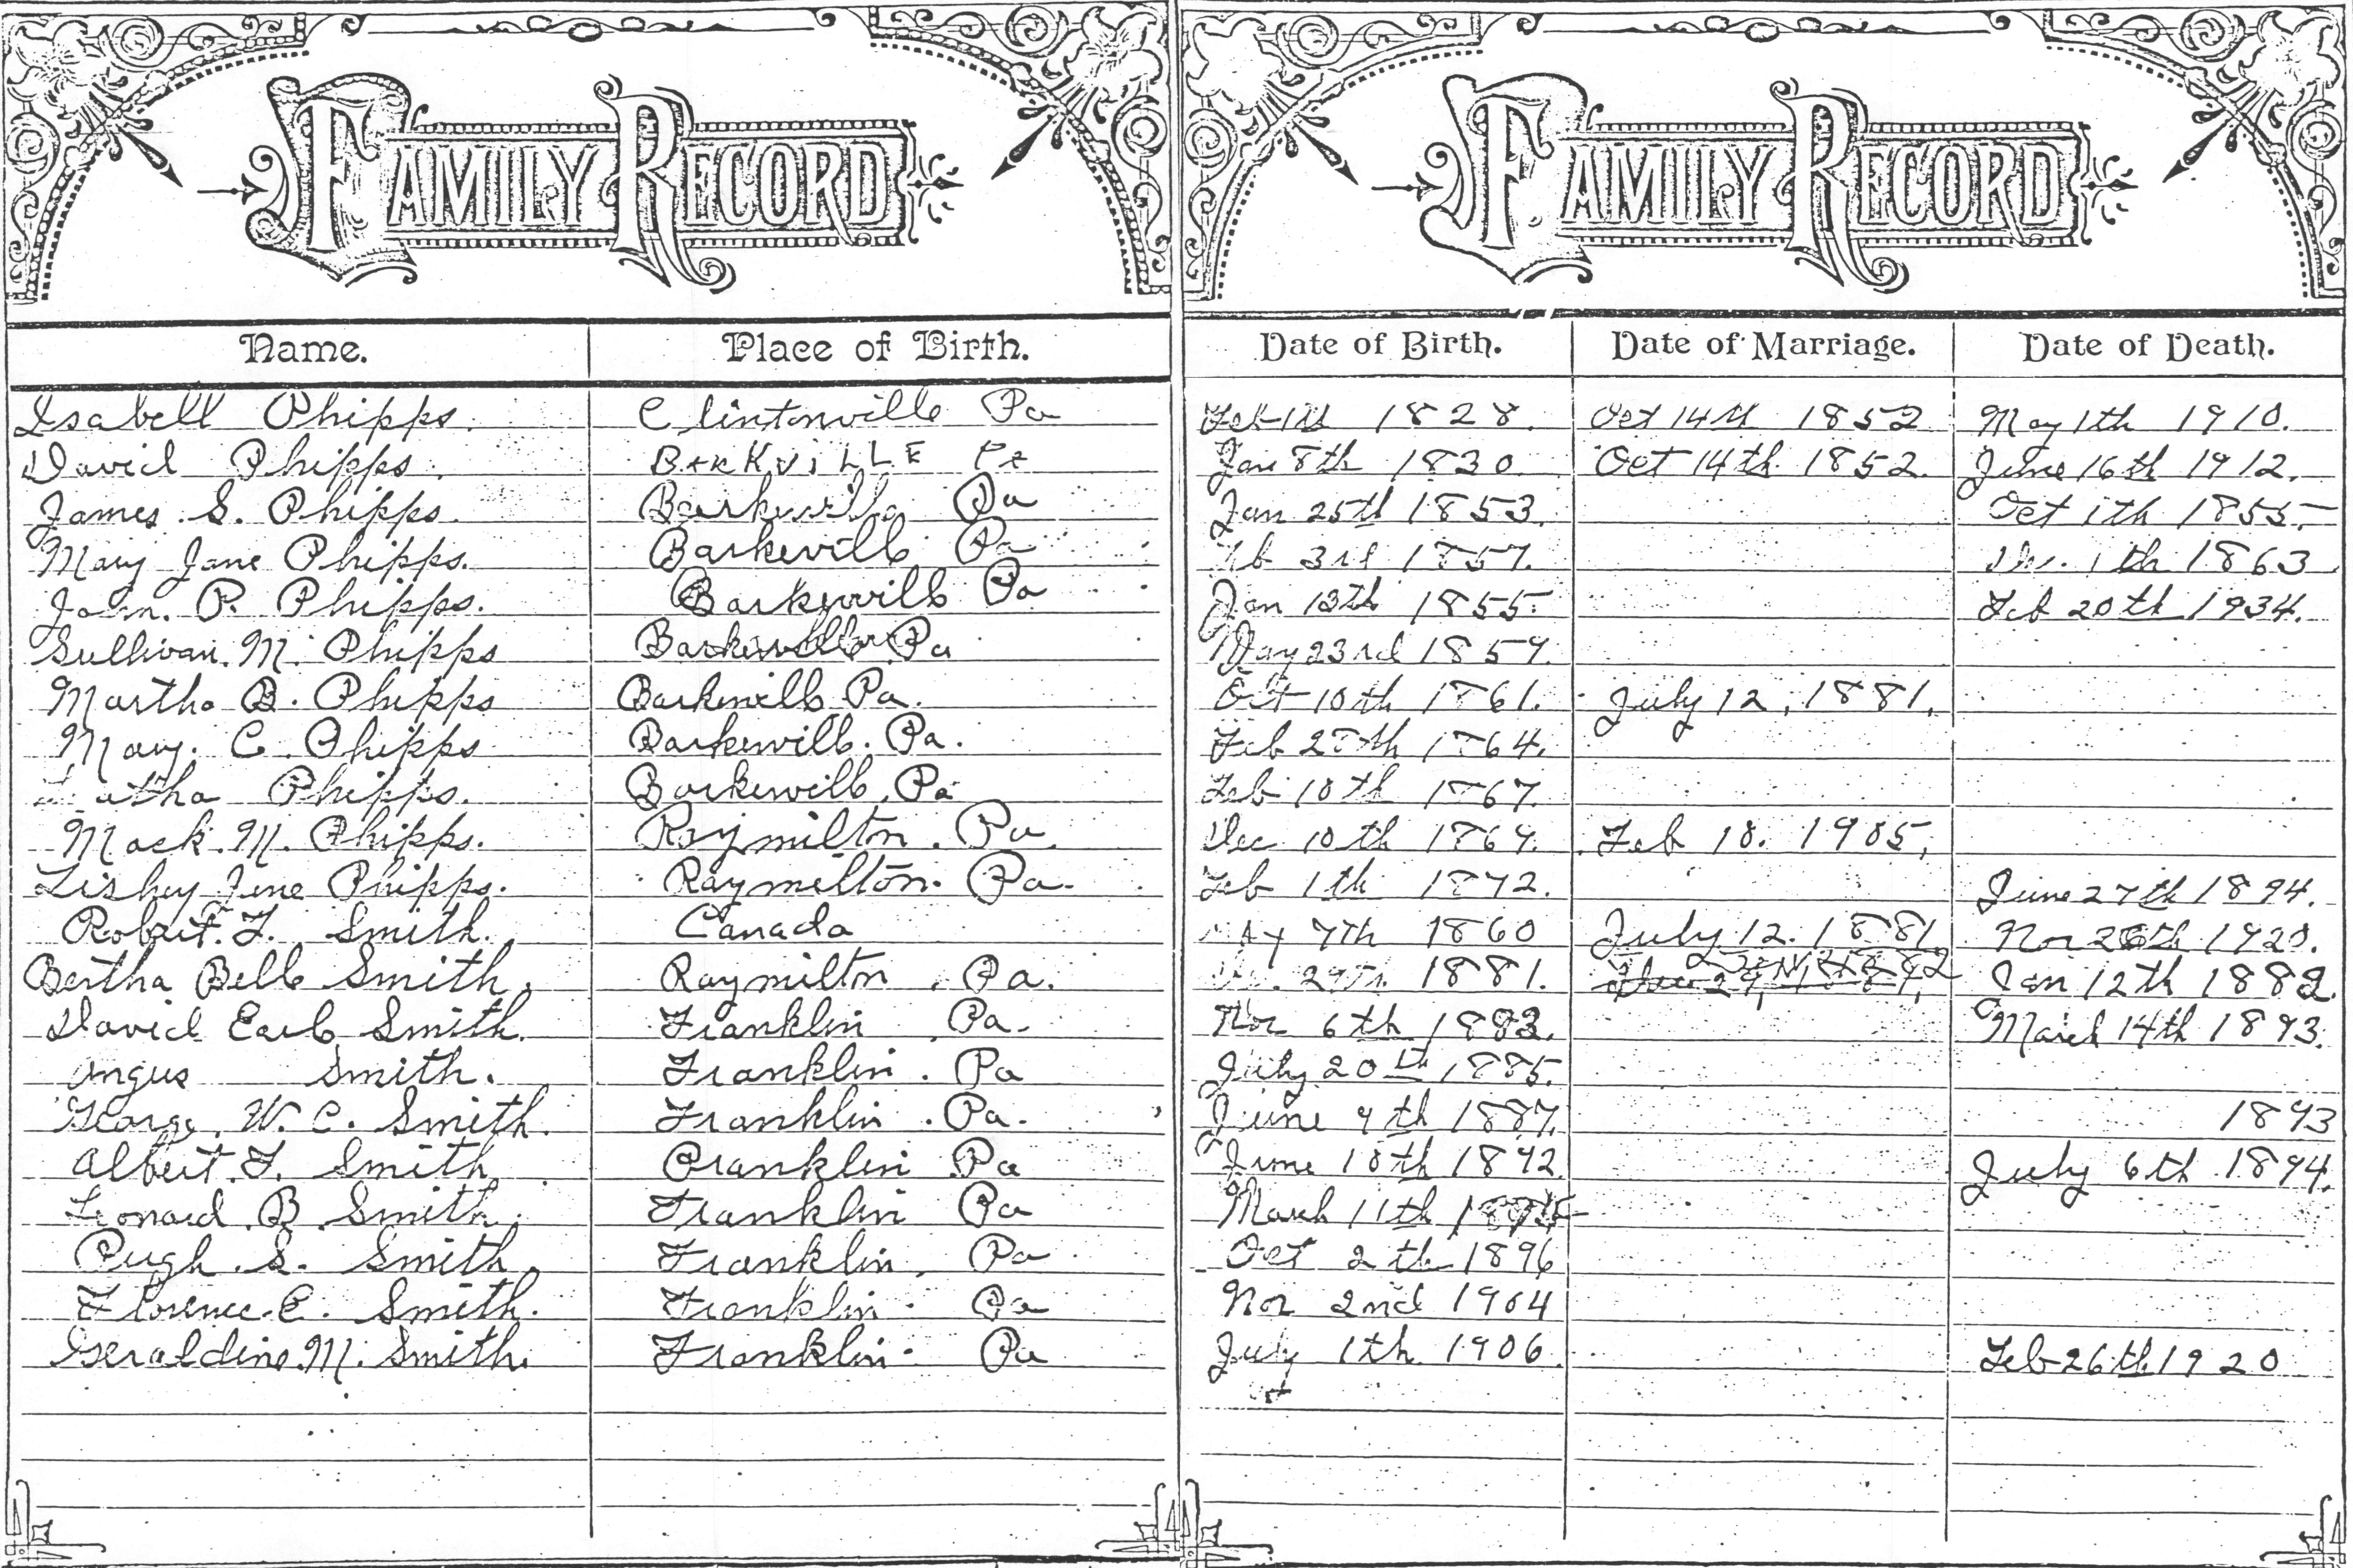 FAMILY RECORD FAMILY RECORD
Name. Place of Birth. Date of Birth. Date of Marriage. Date of Death.
Isabell Phipps. Clintonville Pa Feb 1st 1828. Oct 14th 1852 May 1th 1910.
David Phipps. Jan 8th 1830. Oct 14th 1852. June 16th 1912.
James S. Phipps. Pa Jan 25th 1853. Oct 1th 1855.
Mary Jane Phipps. Barkevill Pa 3rd 1857. 1th 1863
John. P. Phipps. Barkevill Pa Jan 13th 1855. Feb 20th 1934.
Sullivan. M. Phipps Pa May 23rd 1859.
Martha B. Phipps Barkevill Pa. Oct 10th 1861. July 12, 1881.
Mary. C. Phipps Barkevill. Pa. Feb 1864.
Phipps. Barkevill, Pa Feb 10th 1867.
Mack. M. Phipps. Raymilton. Pa. Dec 10th 1869. Feb 10. 1905,
Jene Phipps. Raymilton. Pa. Feb 1th 1872. June 27th 1894.
Robert. F. Smith. Canada 7th 1860 July 12. 1881 Nov 1920.
Bertha Bell Smith. Raymilton, Pa. 1881. Jan 12th 1882.
David Earl Smith. Franklin, Pa. Nov 6th 1883. March 14th 1893.
Angus Smith. Franklin. Pa July 20th 1885.
George. W. C. Smith. Franklin. Pa. June 9th 1887. 1893
Albert. F. Smith Franklin Pa June 10th 1892 July 6th 1894.
Leonard. B. Smith. Franklin Pa March 11th
Pugh. S. Smith. Franklin, Pa Oct 2th 1896
Florence. E. Smith. Franklin. Pa Nov 2nd 1904
Geraldine. M. Smith. Franklin. Pa July 1th 1906. Feb 26th 1920
st